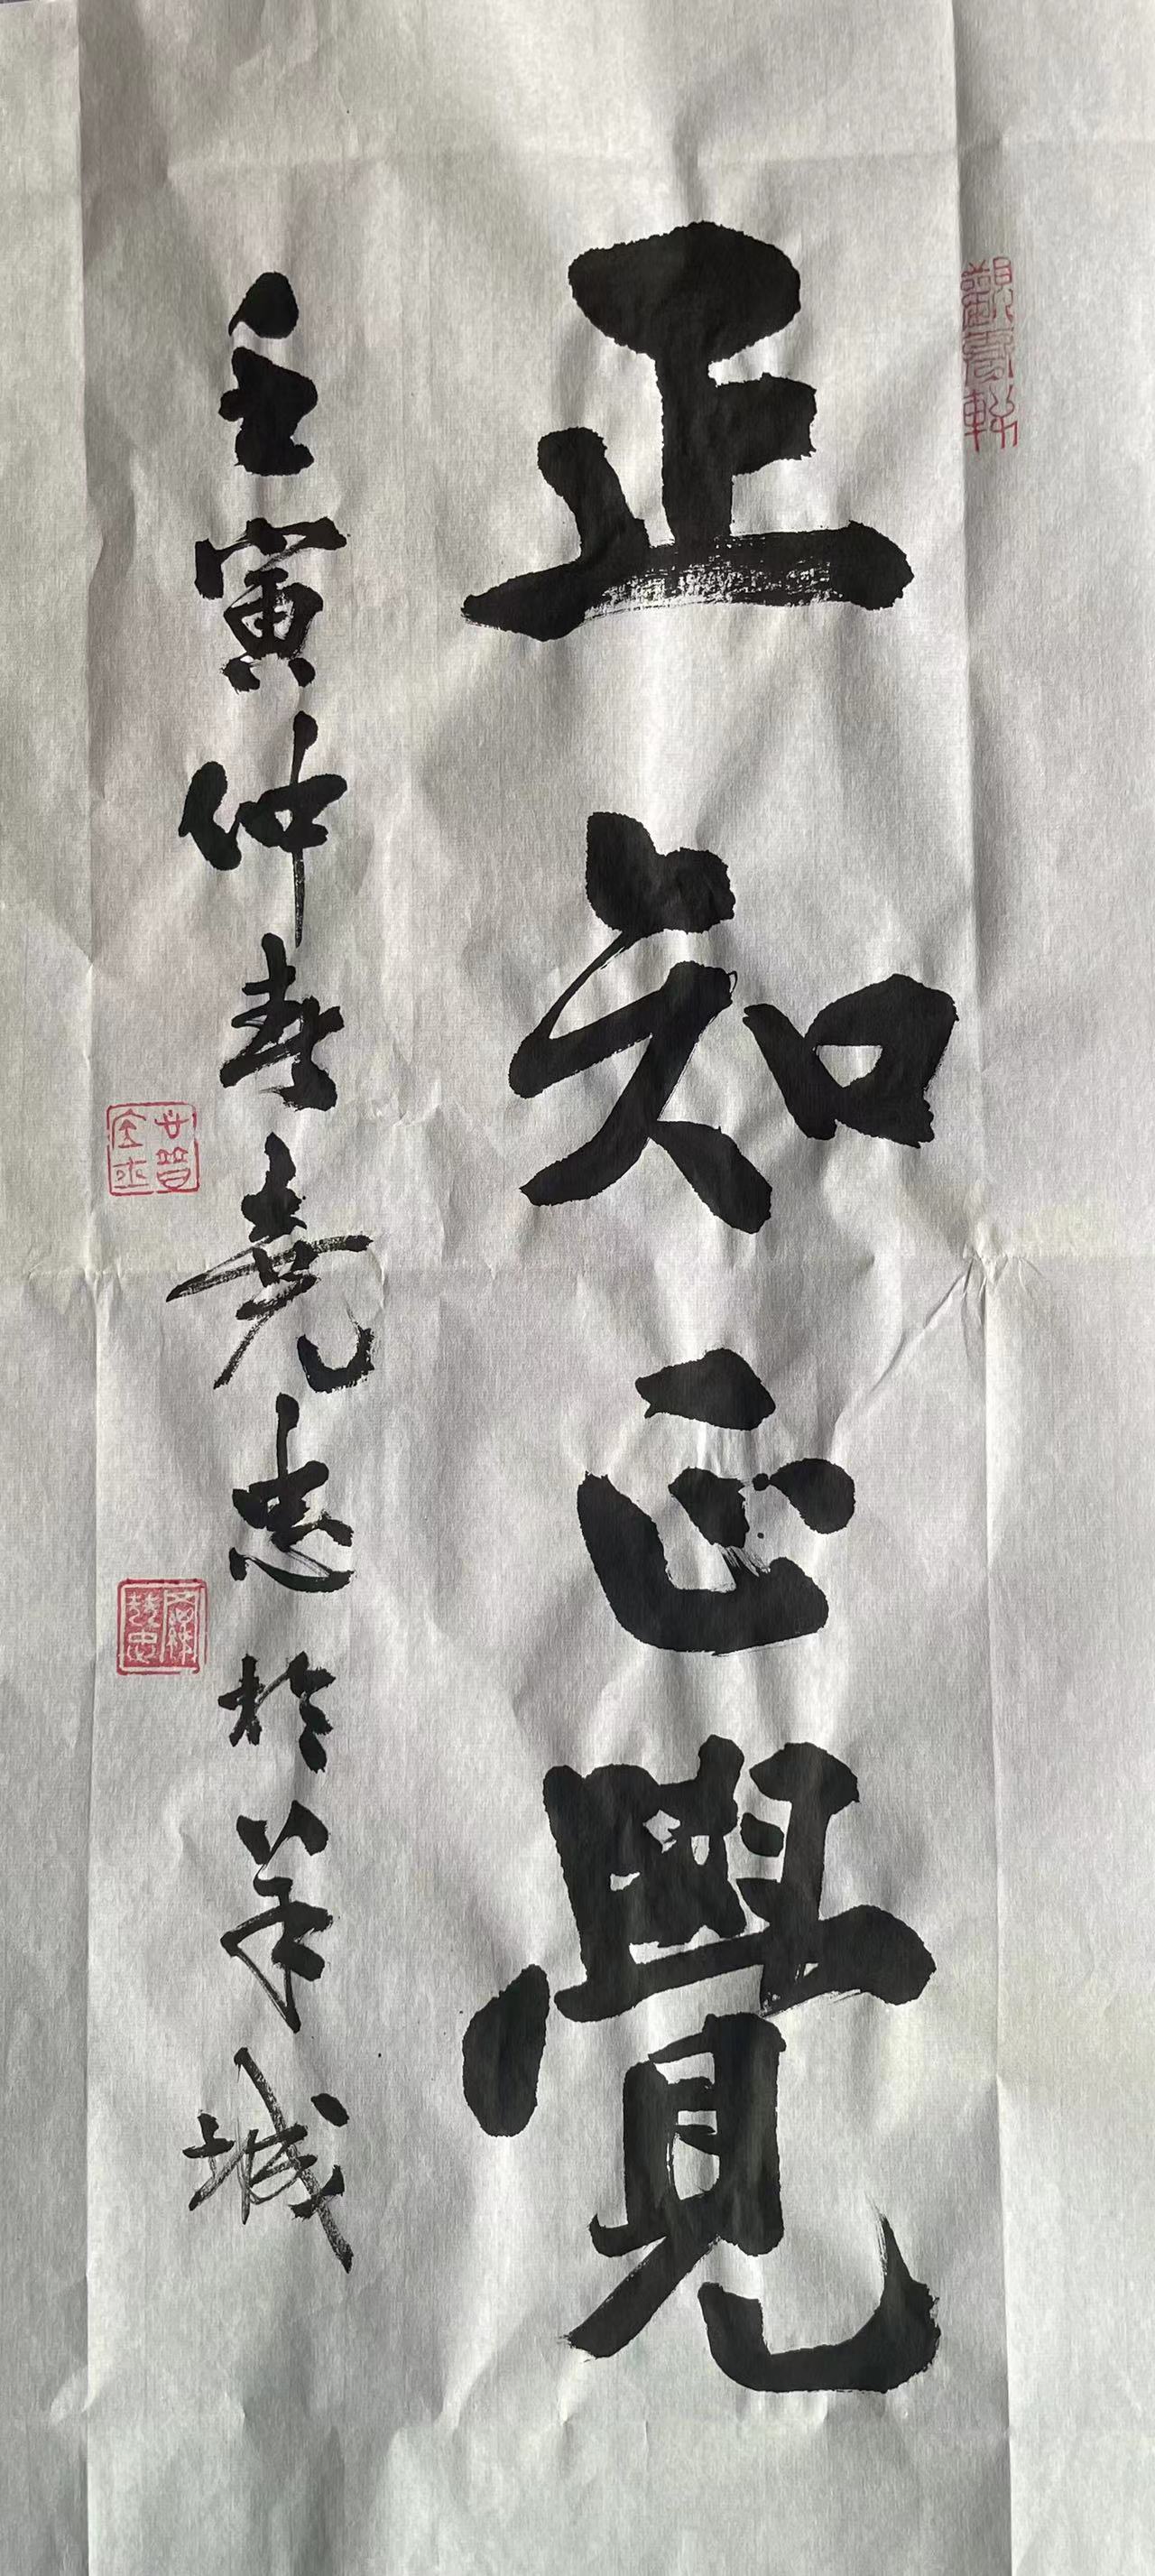 正知正覺
壬寅仲春堯忠於羊城